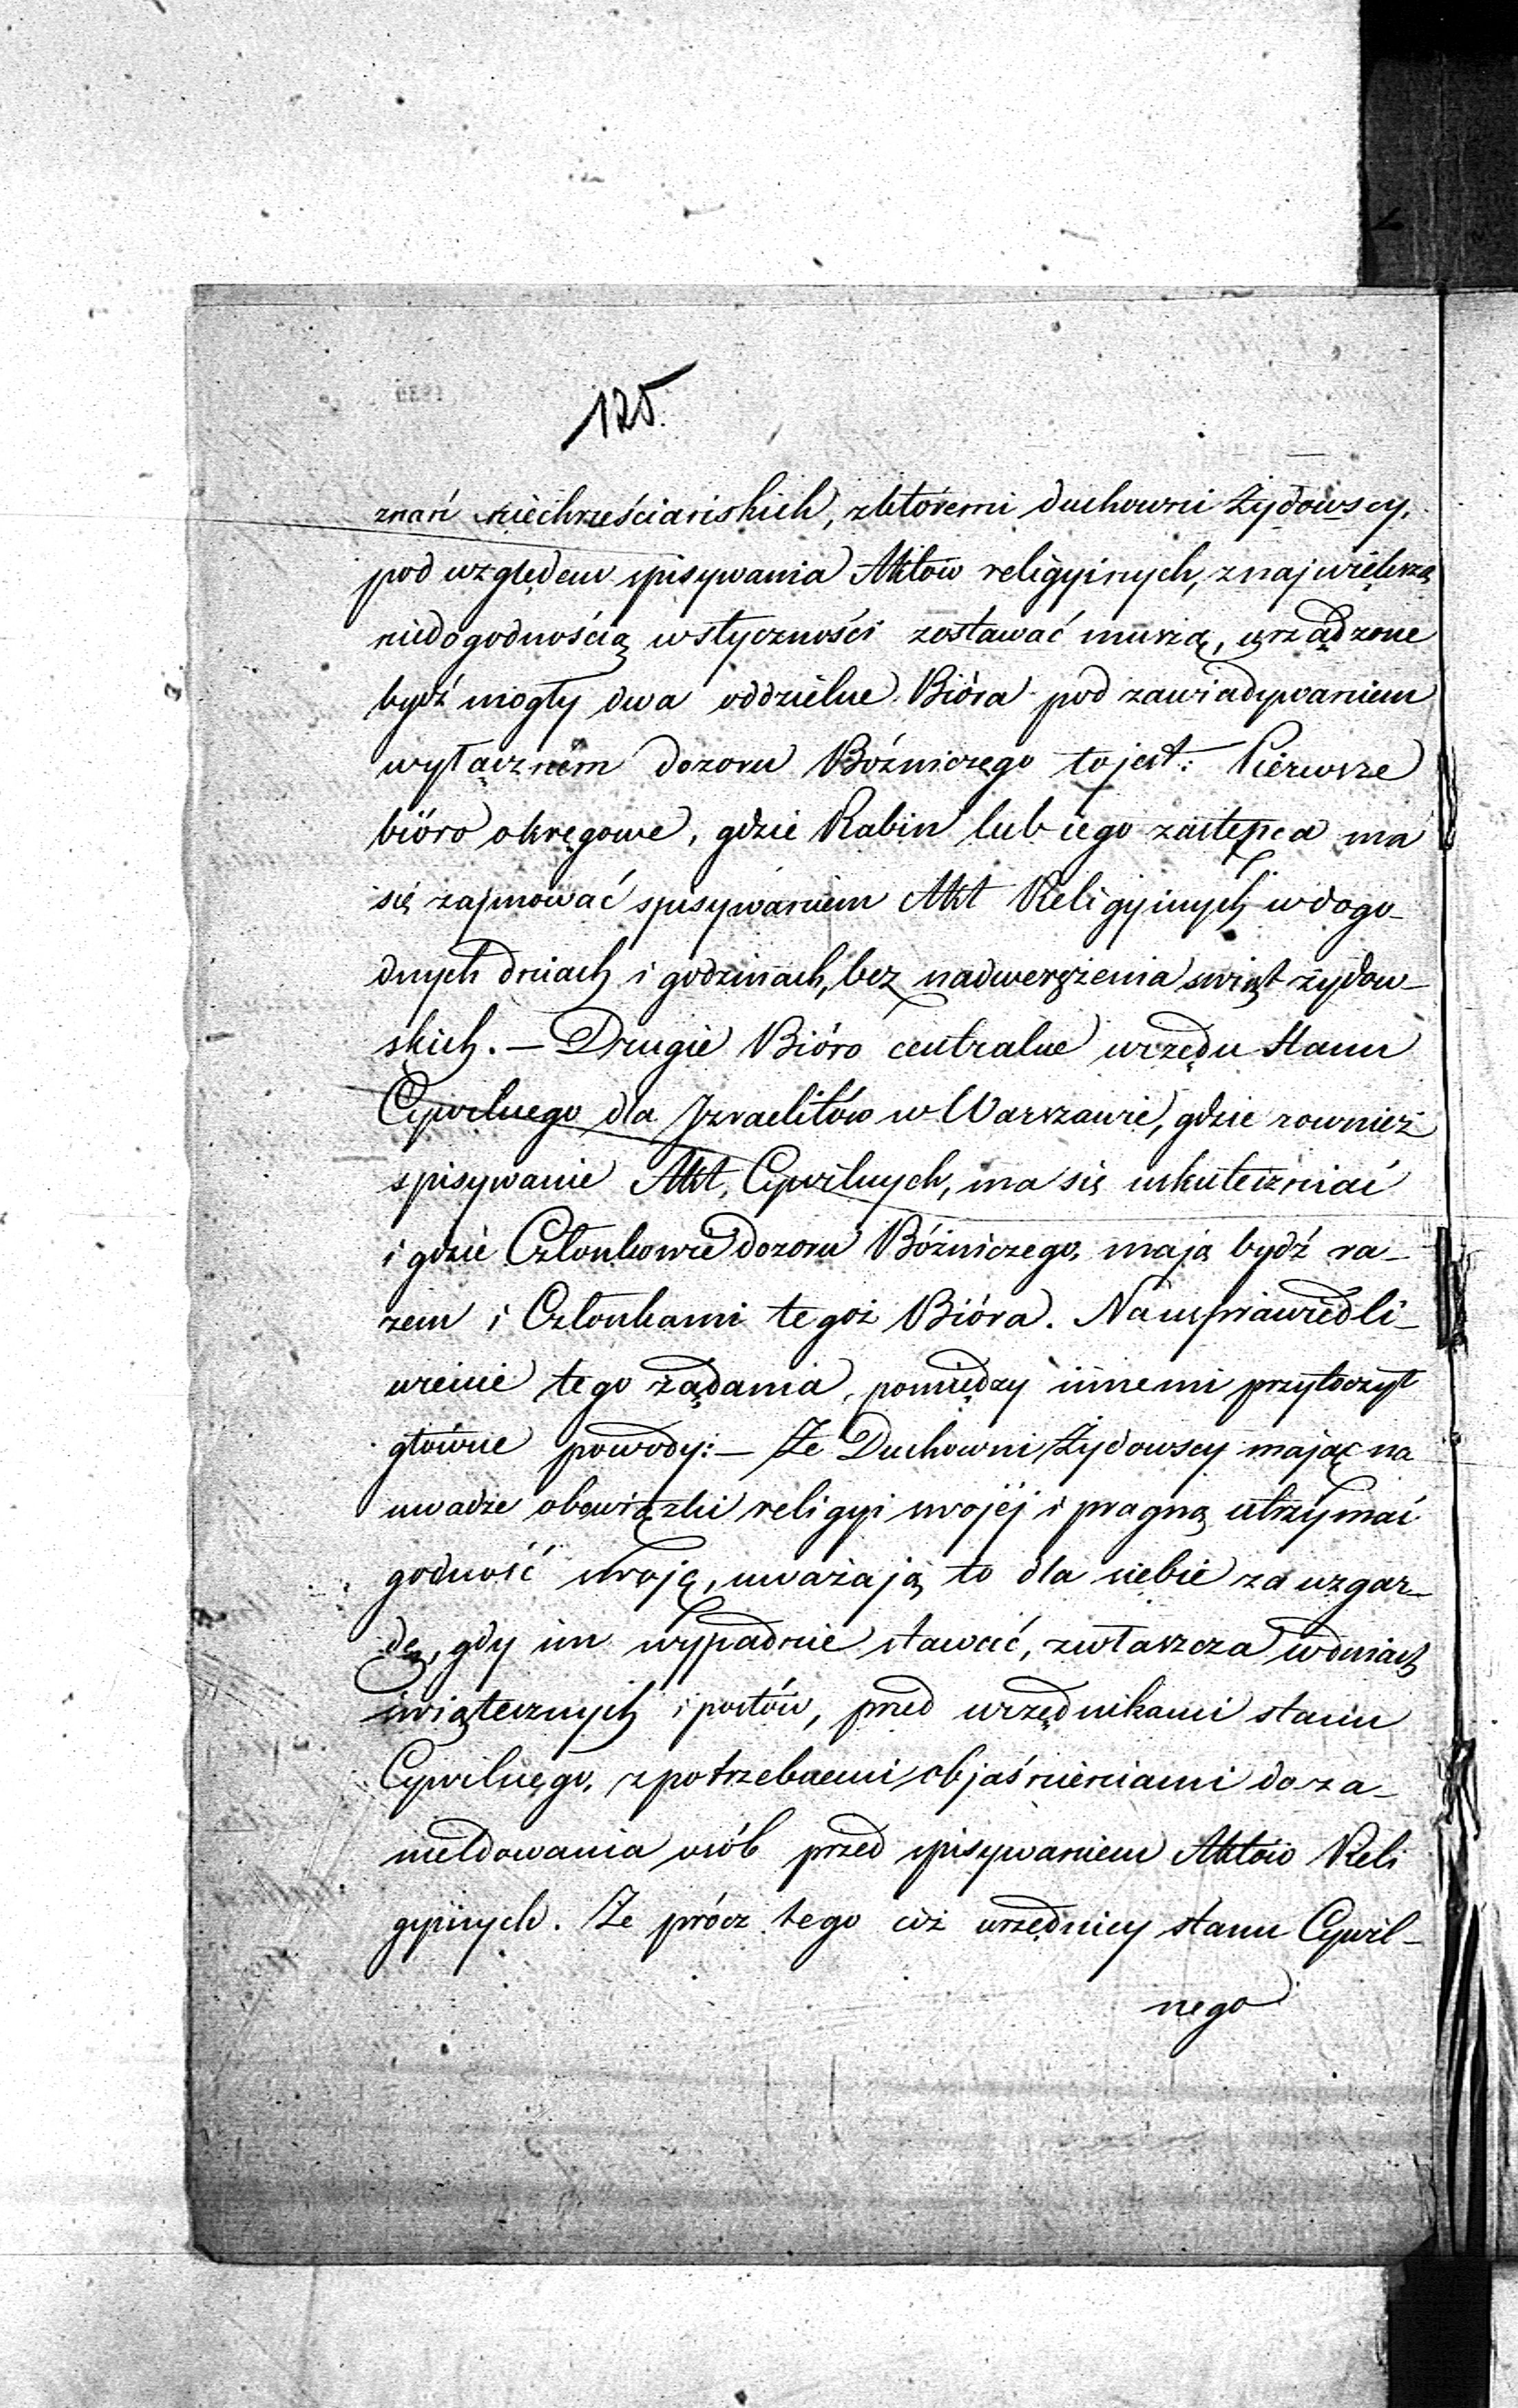 125.
znań niechrześciańskich, zktóremi duchowni Żydowscy,
pod względem spisywania Aktów religyinych, znajwiększą
niedogodnością wstyczności zostawać muszą, urządzone
bydź mogły dwa oddzielne Bióra pod zawiadywaniem
wyłącznem dozoru Bóżniczego tojest: Pierwsze
bióro okręgowe, gdzie Rabin lub iego zastępca ma
się zajmować spisywaniem Akt Religyinych wdogo-
dnych dniach i godzinach, bez nadwerężenia swiąt żydow-
skich. — Drugie Bióro centralne urzędu Stanu
Cywilnego dla Izraelitów w Warszawie, gdzie rownież
spisywanie Akt, Cywilnych, ma się uskuteczniać
i gdzie Członkowie dozoru Bóżniczego, mają bydź ra-
zem i Członkami tegoż Bióra. Na usprawiedli-
wienie tego żądania, pomiędzy innemi przytoczył
główne powody: — Że Duchowni Żydowscy mając na
uwadze obowiązki religyi swojéj i pragną utrzymać
godność swoję, uważają to dla siebie za wzgar-
dę, gdy im wypadnie stawać, zwłaszcza wdniach
świątecznych i postów, przed urzędnikami stanu
Cywilnego, zpotrzebnemi objaśnieniami do za-
meldowania osób przed spisywaniem Aktów Reli
gyinych. Że prócz tego ciż urzędnicy stanu Cywil-
nego